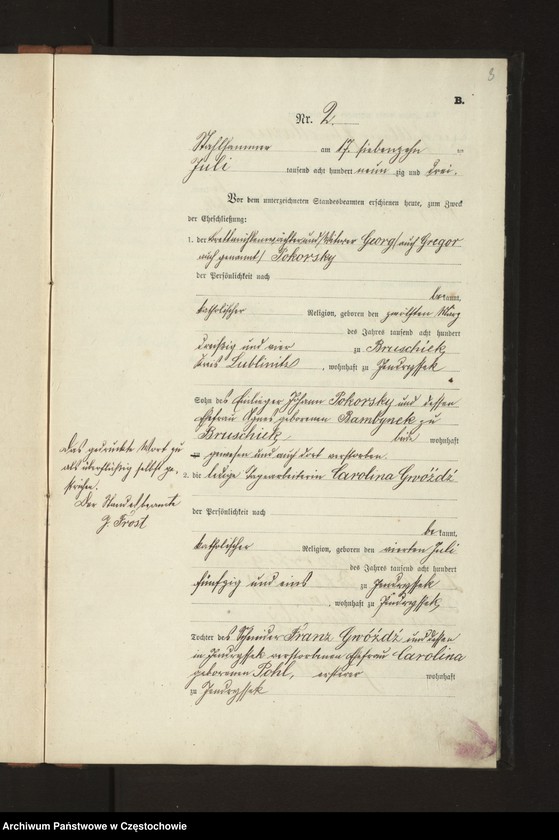 3
B.
Nr. 2.
Stahlhammer am 17. siebenzehn ten
Juli tausend acht hundert neun zig und drei.
Vor dem unterzeichneten Standesbeamten erschienen heute, zum Zweck
der Eheschließung:
1. der und Witwer Georg/ auch Gregor
auch genannt/ Pokorsky
der Persönlichkeit nach
bekannt,
katholischer Religion, geboren den zwölften März
des Jahres tausend acht hundert
dreißig und vier zu Bruschiek,
Kreis Lublinitz, wohnhaft zu Jendryssek
Sohn des Einlieger Johann Pokorsky und dessen
Ehefrau Agnes geborenen Bambynek zu
Bruschiek, beide wohnhaft
gewesen und auch dort verstorben.
Das gedruckte Wort zu
als überflüssig selbst ge-
strichen.
Der Standesbeamte
G. Frost
2. die ledige Tagearbeiterin Carolina Gwóźdź
der Persönlichkeit nach
bekannt,
katholischer Religion, geboren den vierten Juli
des Jahres tausend acht hundert
fünfzig und eins zu Jendryssek
, wohnhaft zu Jendryssek,
Tochter des Franz Gwóźdź und dessen
in Jendryssek verstorbenen Ehefrau Carolina
geborenen Pohl, ersterer wohnhaft
zu Jendryssek
Archiwum Państwowe w Częstochowie